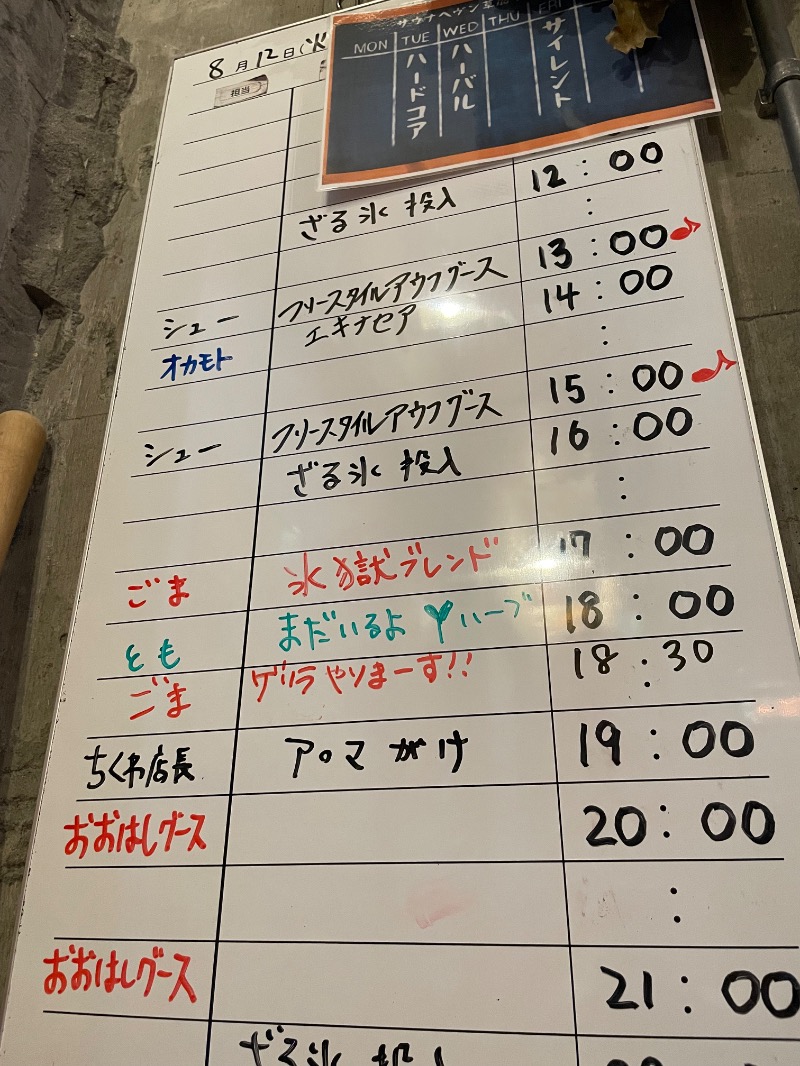 8月12日(火
サウナヘヴン
MON TUE WED THU FRI
ハードコア
ハーバル
サイレント
担当
ざる氷 投入 12:00
:
シュー フリースタイルアウフグース 13:00
オカモト エキナセア 14:00
:
シュー フリースタイルアウフグース 15:00
ざる氷 投入 16:00
:
ごま 氷獄ブレンド 17:00
とも まだいるよ ハーブ 18:00
ごま ゲリラやりまーす!! 18:30
ちくわ店長 アロマがけ 19:00
おおはしグース 20:00
:
おおはしグース 21:00
ざる氷 投入